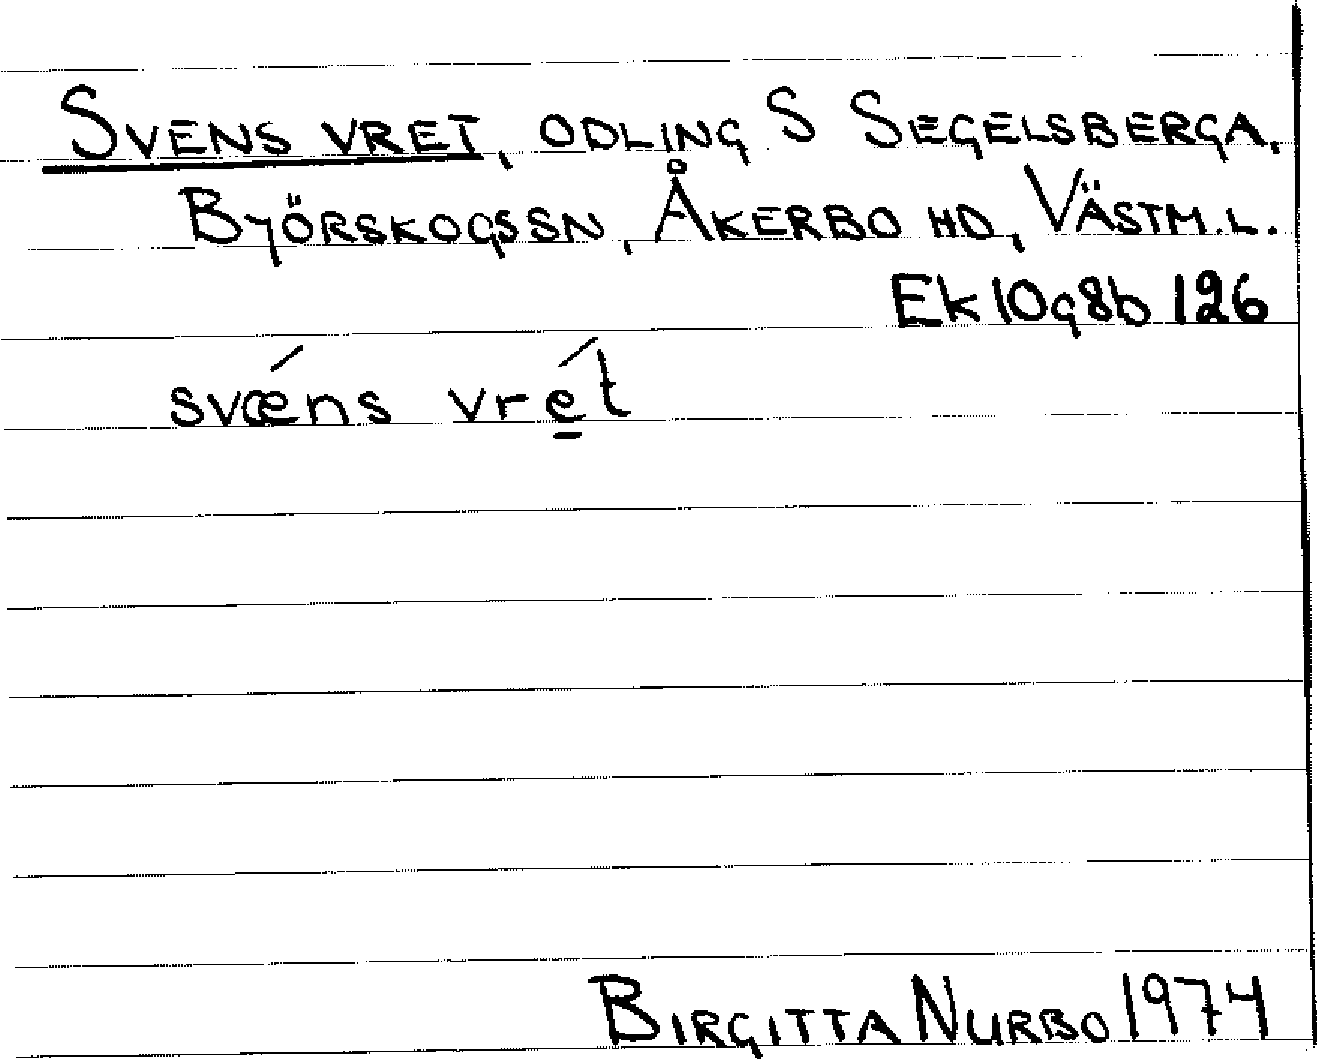 SVENS VRET, ODLING S SEGELSBERGA,
BYÖRSKOGSSN, ÅKERBO HD, VÄSTM.L.
Ek 10g8b 126
svǽns vré̱t
BIRGITTA NURBO 1974